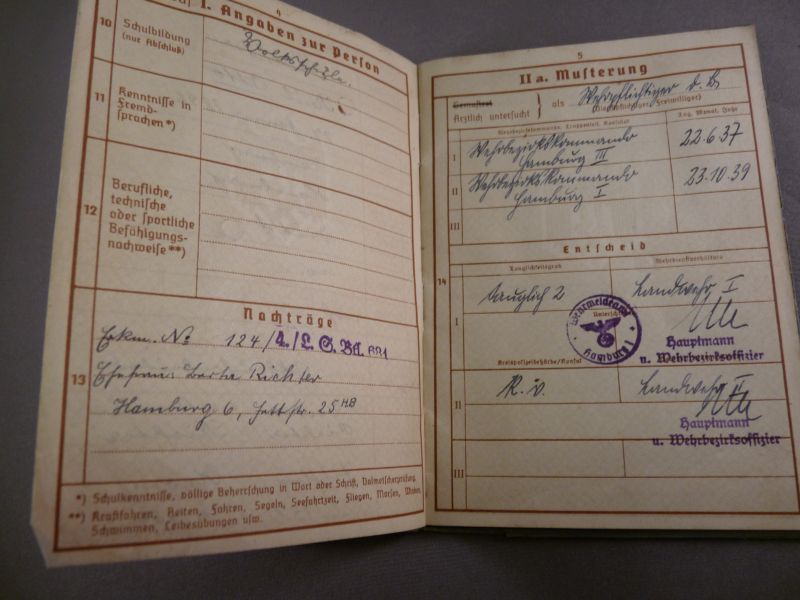 4
I. Angaben zur Person
10 Schulbildung
(nur Abschluß)
Volksschule.
11 Kenntnisse in
Fremd-
sprachen*)
12 Berufliche,
technische
oder sportliche
Befähigungs-
nachweise**)
Nachträge
13
Erkm. No 124/4./L.S.Bt.
Ehefrau: Berta Richter
Hamburg 6, str. 25 HB
*) Schulkenntnisse, völlige Beherrschung in Wort oder Schrift, Dolmetscherprüfung.
**) Kraftfahren, Reiten, Fahren, Segeln, Seefahrtzeit, Fliegen, Morsen,
Schwimmen, Leibesübungen usw.
5
II a. Musterung
Gemustert
Ärztlich untersucht } als Wehrpflichtiger d. B.
(Dienstpflichtiger, Freiwilliger)
Wehrbezirkskommando, Truppenteil, Konsulat
Tag, Monat, Jahr
I Wehrbezirkskommando
Hamburg III
22.6.37
II Wehrbezirkskommando
Hamburg I
23.10.39
III
Entscheid
14
Tauglichkeitsgrad
Wehrdienstverhältnis
I tauglich 2
Landwehr I
Unterschrift
Wehrmeldeamt
Hamburg 1
Hauptmann
u. Wehrbezirksoffizier
Kreispolizeibehörde/Konsul
II K.v.
Landwehr II
Hauptmann
u. Wehrbezirksoffizier
III